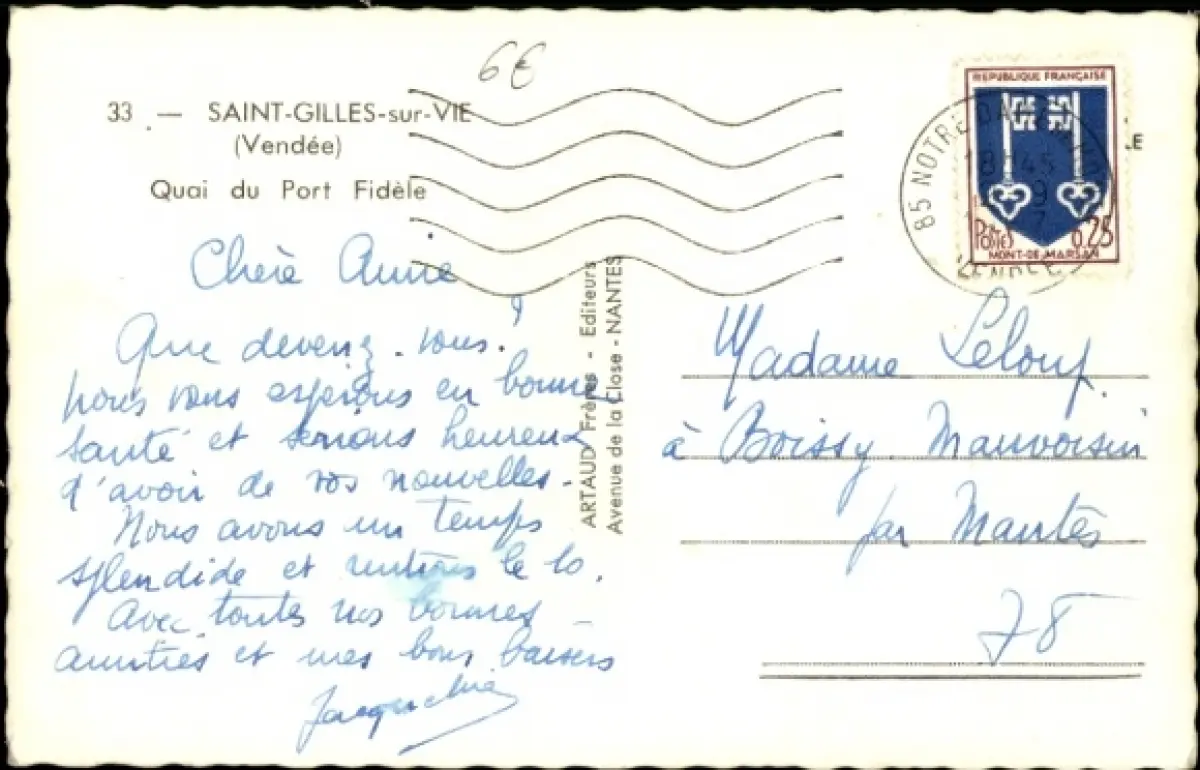 6€
33 — SAINT-GILLES-sur-VIE
(Vendée)
Quai du Port Fidèle
Chère Amie
Que devenez-vous?
nous vous espérons en bonne
santé et serions heureux
d'avoir de vos nouvelles.
Nous avons un temps
splendide et rentrons le 10.
Avec toutes nos bonnes
amitiés et mes bons baisers
Jacqueline
ARTAUD Frères - Editeurs
Avenue de la Close - NANTES
REPUBLIQUE FRANÇAISE
POSTES
0,25
MONT-DE-MARSAN
85 NOTRE DAME
18H45
VENDEE
LE
Madame Leloup
à Boissy Mauvoisin
par Mantes
78